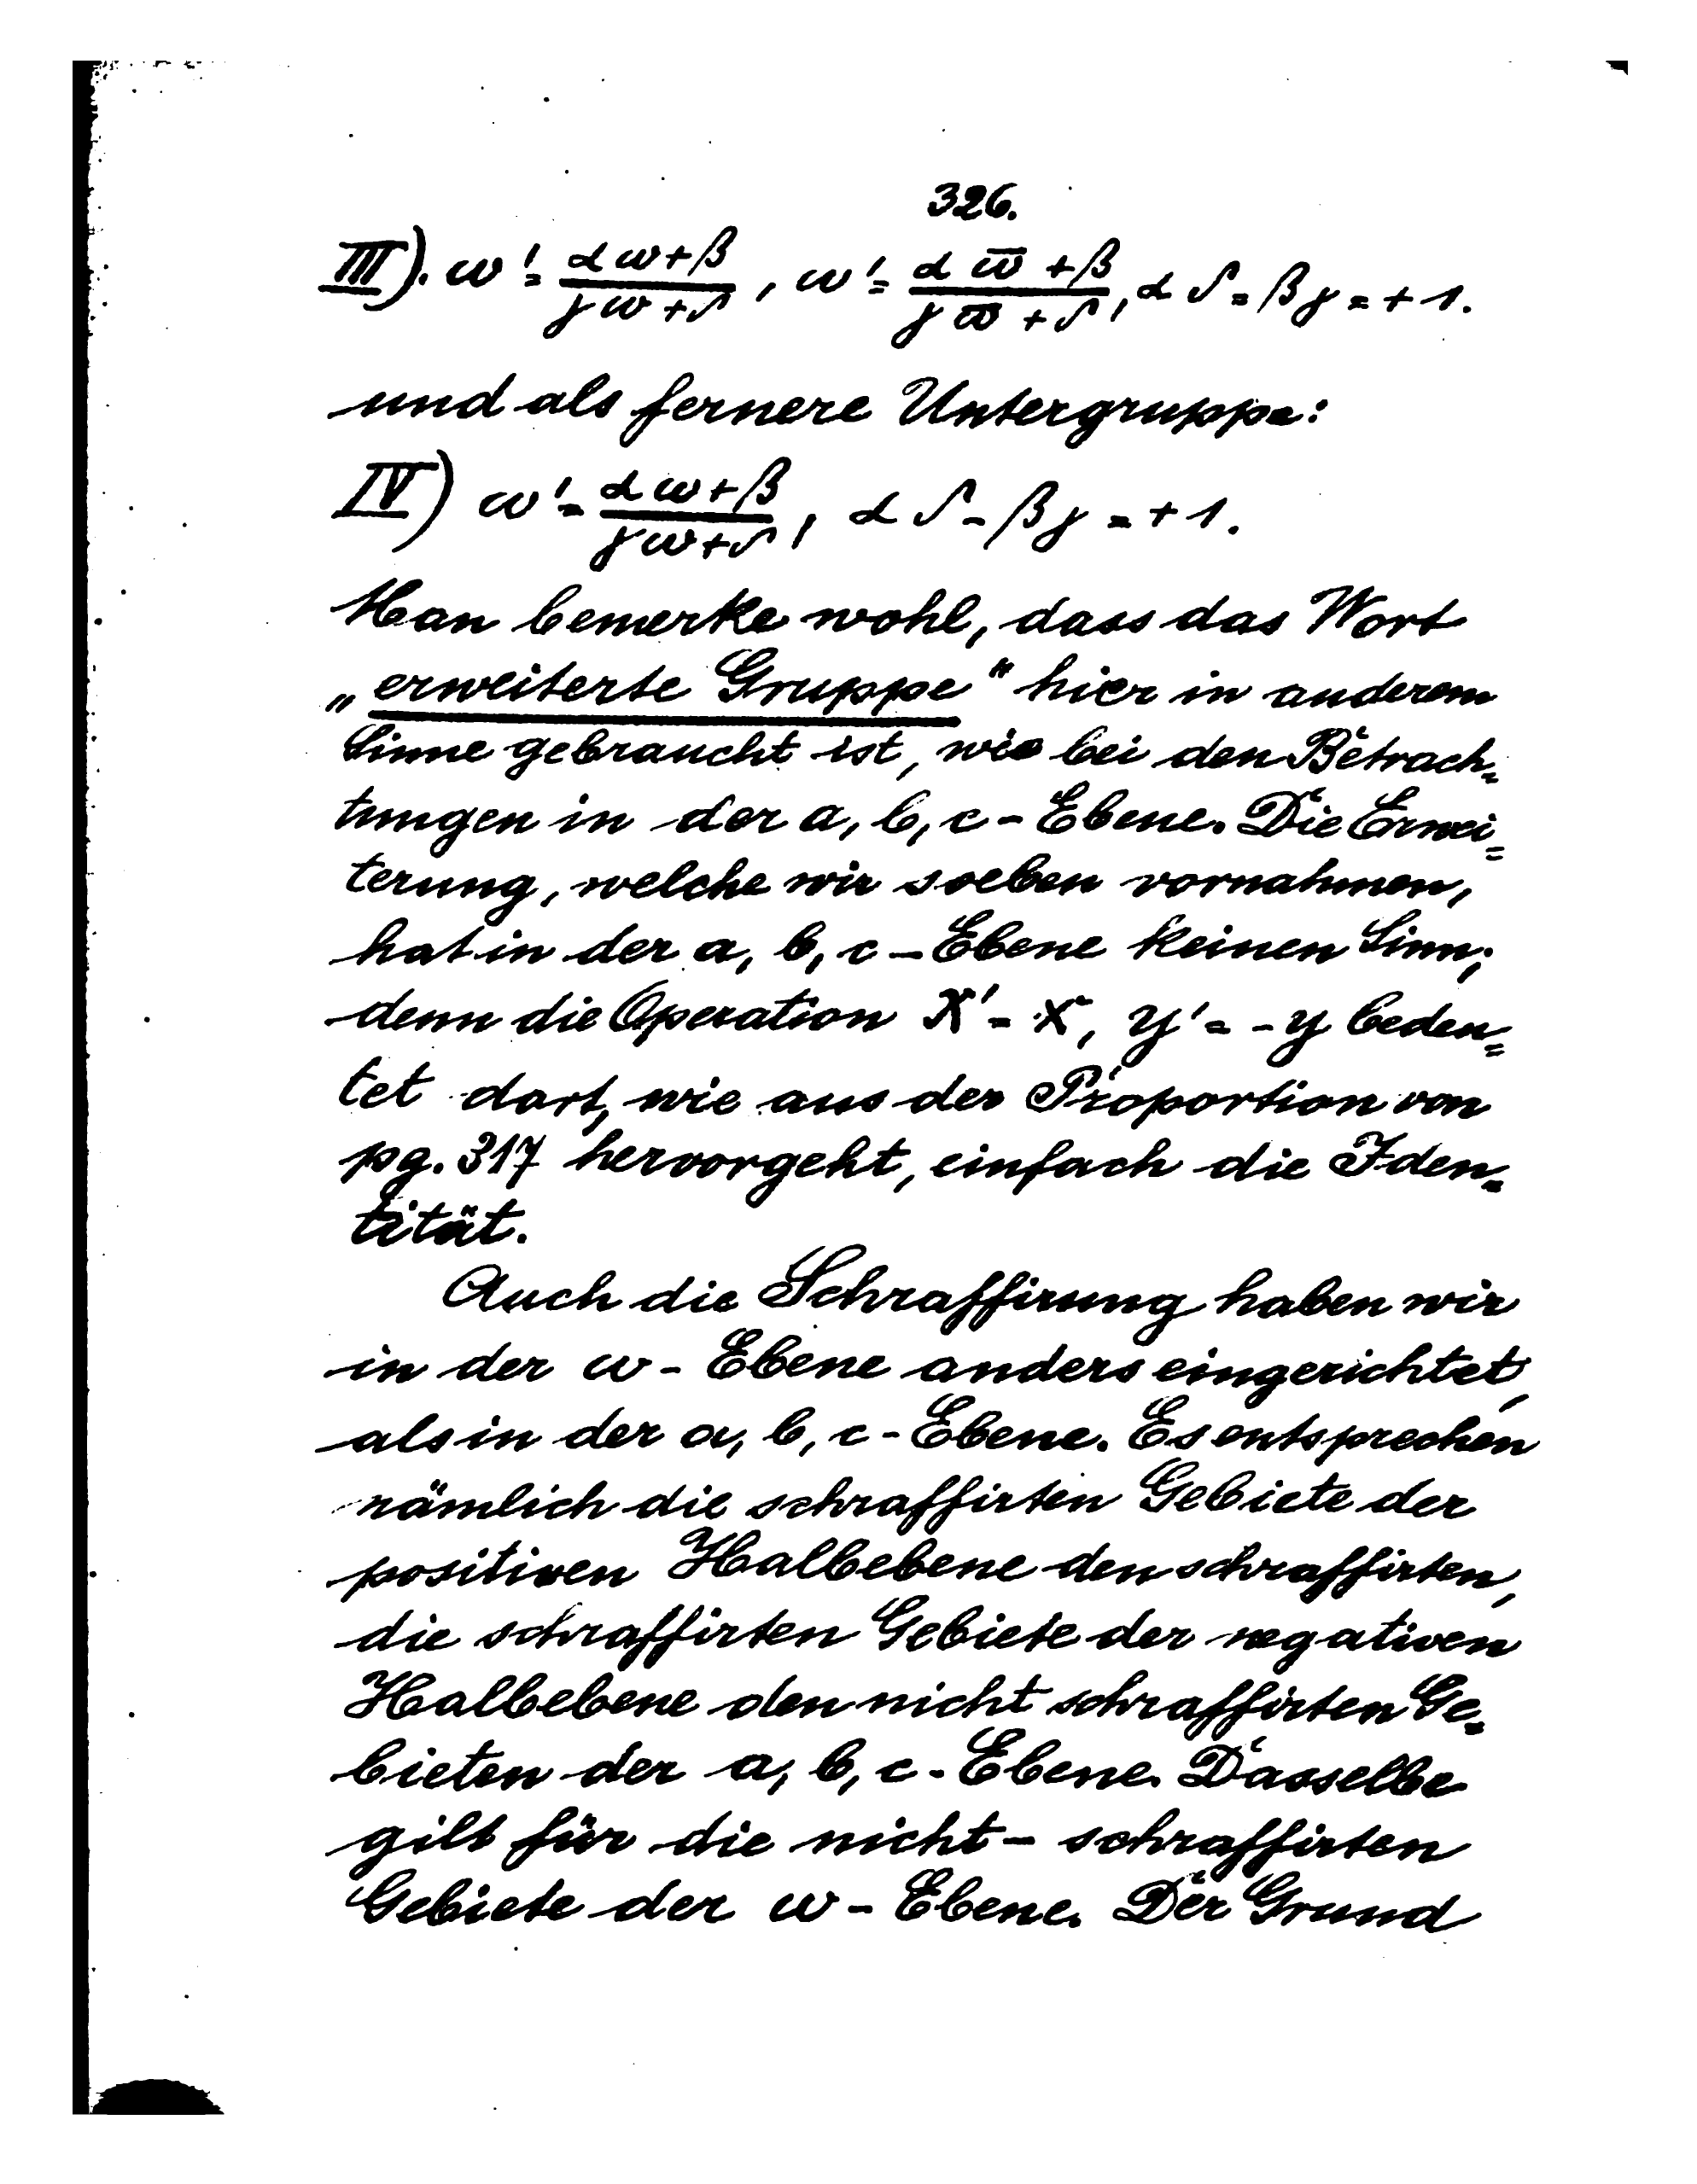 326.
III). ω' = (αω+β)/(γω+δ), ω' = (αω̄+β)/(γω̄+δ), αδ = βγ = +1.
und als fernere Untergruppe:
IV) ω' = (αω+β)/(γω+δ), αδ - βγ = +1.
Man bemerke wohl, dass das Wort
„erweiterte Gruppe“ hier in anderem
Sinne gebraucht ist, wie bei den Betrach=
tungen in der a, b, c - Ebene. Die Erwei=
terung, welche wir soeben vornahmen,
hat in der a, b, c - Ebene keinen Sinn;
denn die Operation x' = x, y' = -y bedeu=
tet dort, wie aus der Proportion von
pg. 317 hervorgeht, einfach die Iden=
tität.
Auch die Schraffirung haben wir
in der ω - Ebene anders eingerichtet,
als in der a, b, c - Ebene. Es entsprechen
nämlich die schraffirten Gebiete der
positiven Halbebene den schraffirten,
die schraffirten Gebiete der negativen
Halbebene den nicht schraffirten Ge=
bieten der a, b, c - Ebene. Dasselbe
gilt für die nicht - schraffirten
Gebiete der ω - Ebene. Der Grund